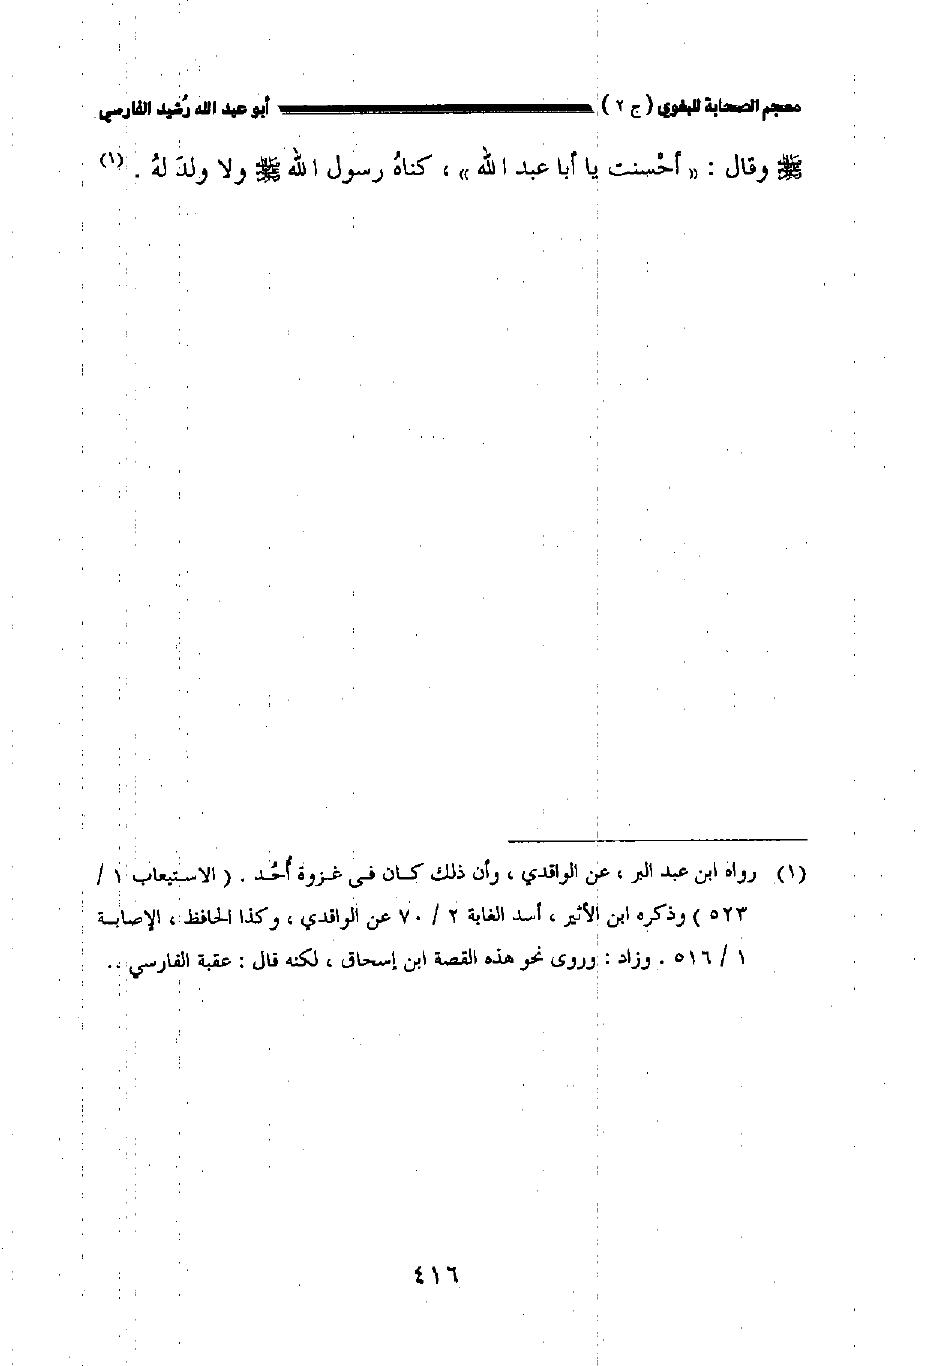 معجم الصحابة للبغوي ( ج ٢ ) أبو عبد الله رُشيد الفارسي
ﷺ وقال : « أحْسنت يا أبا عبد الله » ، كناهُ رسول الله ﷺ ولا ولدَ لهُ . (١)
(١) رواه ابن عبد البر ، عن الواقدي ، وأن ذلك كـان فـي غـزوة أُحُـد . ( الاستيعاب ١ /
٥٢٣ ) وذكره ابن الأثير ، أسد الغابة ٢ / ٧٠ عن الواقدي ، وكذا الحافظ ، الإصابـة
١ / ٥١٦ . وزاد : وروى نحو هذه القصة ابن إسحاق ، لكنه قال : عقبة الفارسي ..
٤١٦